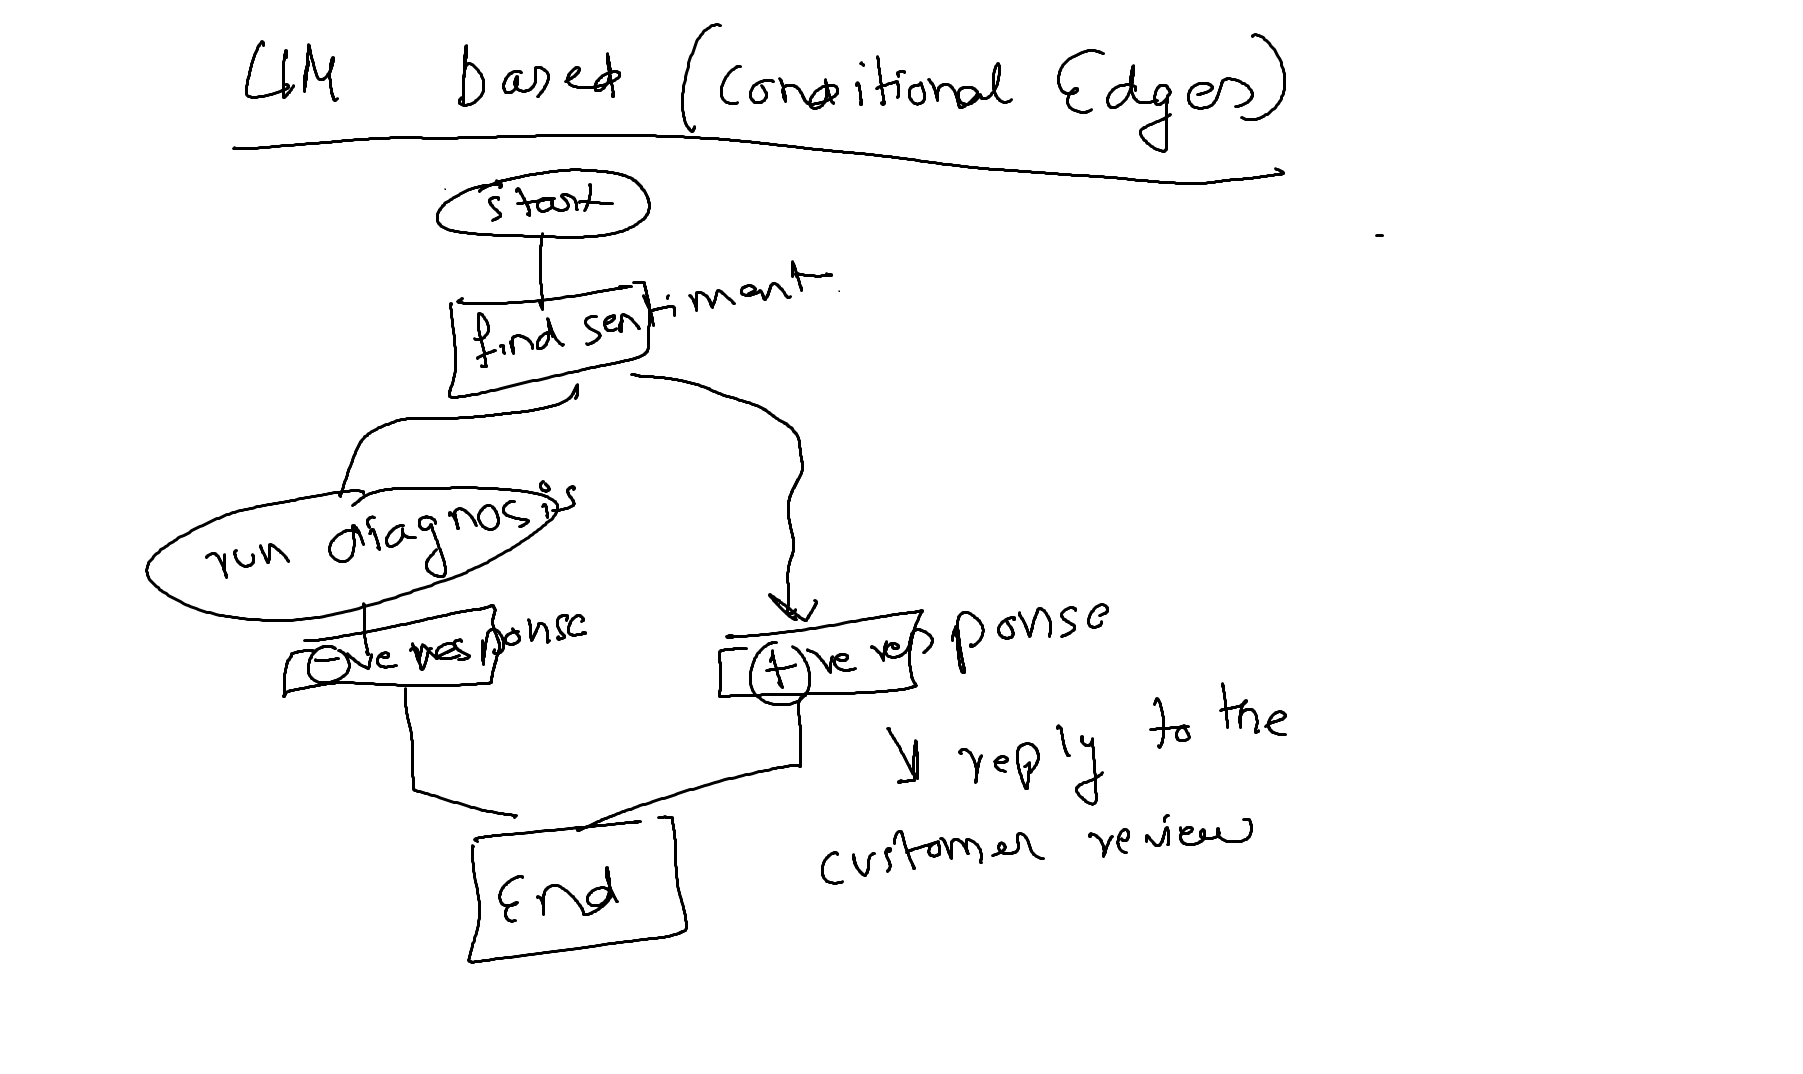 LLM based (Conditional Edges)
start
find sentiment
run diagnosis
-ve response
+ve response
reply to the
customer review
End